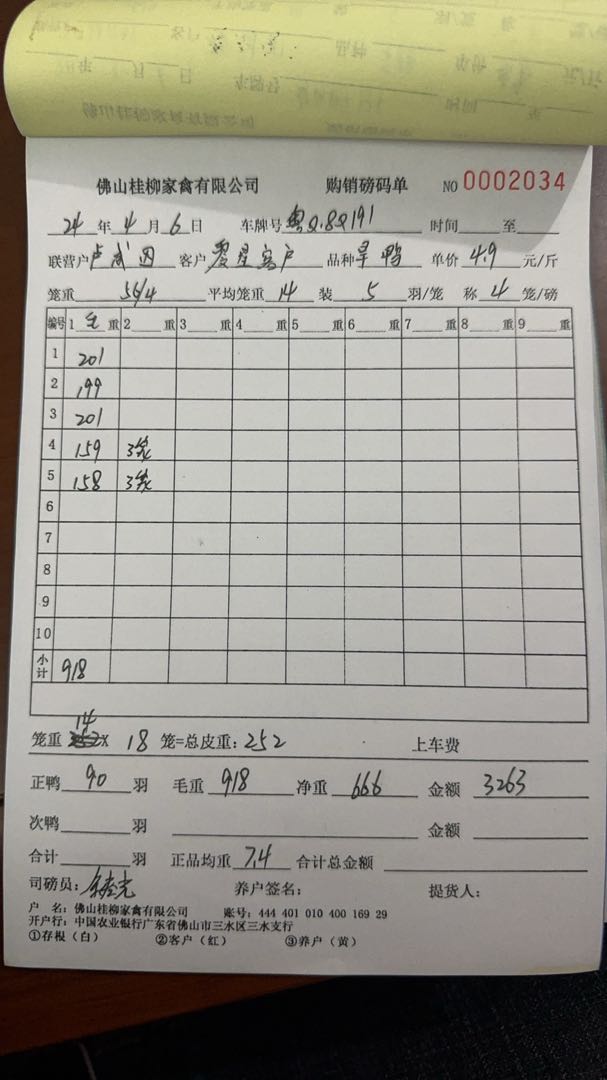 佛山桂柳家禽有限公司 购销磅码单 NO 0002034
24 年 4 月 6 日 车牌号 粤Q.8Q191 时间 至
联营户 卢 客户 客户 品种 旱鸭 单价 4.9 元/斤
笼重 56/4 平均笼重 14 装 5 羽/笼 称 4 笼/磅
编号 1 毛 重 2 重 3 重 4 重 5 重 6 重 7 重 8 重 9 重
1 201
2 199
3 201
4 159 3笼
5 158 3笼
6
7
8
9
10
小计 918
14
笼重 X 18 笼=总皮重: 252 上车费
正鸭 90 羽 毛重 918 净重 666 金额 3263
次鸭 羽 金额
合计 羽 正品均重 7.4 合计总金额
司磅员: 养户签名: 提货人:
户 名: 佛山桂柳家禽有限公司 账号: 444 401 010 400 169 29
开户行: 中国农业银行广东省佛山市三水区三水支行
①存根(白) ②客户(红) ③养户(黄)